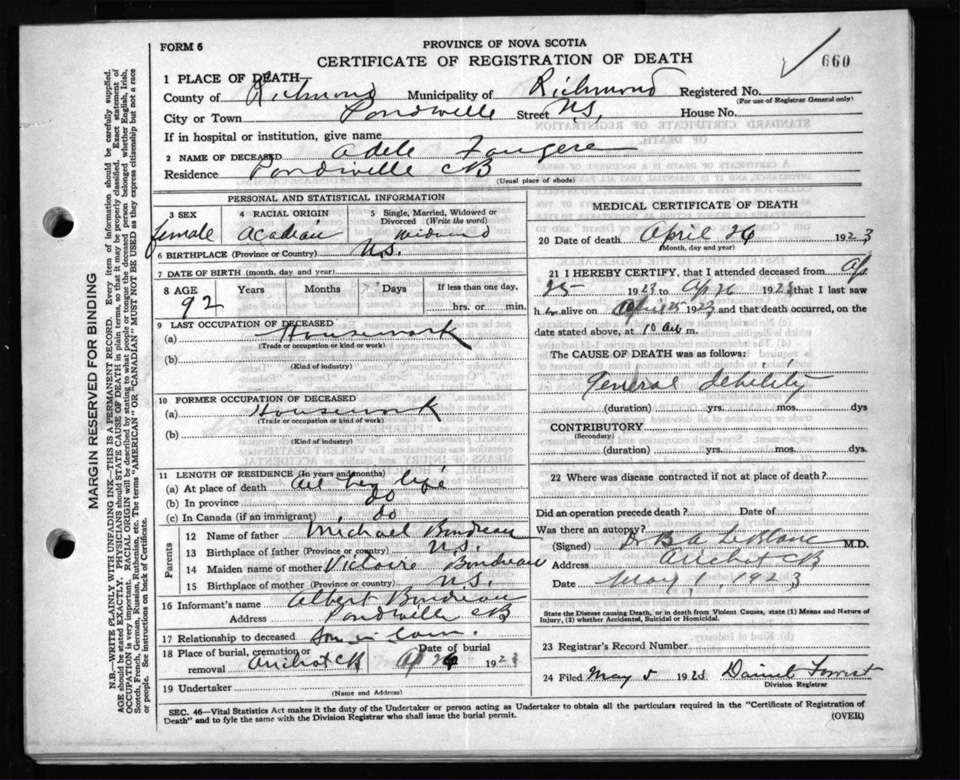 FORM 6
PROVINCE OF NOVA SCOTIA
CERTIFICATE OF REGISTRATION OF DEATH
660
1 PLACE OF DEATH
County of Richmond Municipality of Richmond Registered No.
(For use of Registrar General only)
City or Town Pondville Street N.S, House No.
If in hospital or institution, give name
2 NAME OF DECEASED Adele Fougere
Residence Pondville CB
(Usual place of abode)
PERSONAL AND STATISTICAL INFORMATION
3 SEX 4 RACIAL ORIGIN 5 Single, Married, Widowed or Divorced (Write the word)
female Acadian Widowed
6 BIRTHPLACE (Province or Country) N.S.
7 DATE OF BIRTH (month, day and year)
8 AGE Years Months Days If less than one day,
92 hrs. or min.
9 LAST OCCUPATION OF DECEASED
(a) Housework
(Trade or occupation or kind or work)
(b)
(Kind of industry)
10 FORMER OCCUPATION OF DECEASED
(a) Housework
(Trade or occupation or kind or work)
(b)
(Kind of industry)
11 LENGTH OF RESIDENCE (In years and months)
(a) At place of death All her life
(b) In province do
(c) In Canada (if an immigrant) do
Parents
12 Name of father Michael Boudreau
13 Birthplace of father (Province or country) N.S.
14 Maiden name of mother Victoire Boudreau
15 Birthplace of mother (Province or country) N.S.
16 Informant's name Albert Boudreau
Address Pondville CB
17 Relationship to deceased Son in law.
18 Place of burial, cremation or removal Arichat CB Date of burial Ap 26 1923
19 Undertaker
(Name and Address)
MEDICAL CERTIFICATE OF DEATH
20 Date of death April 26 1923
(Month, day and year)
21 I HEREBY CERTIFY, that I attended deceased from Ap
25 1923 to Ap 26 1923 that I last saw
her alive on April 25 1923 and that death occurred, on the
date stated above, at 10 a m.
The CAUSE OF DEATH was as follows:
General debility
(duration) yrs. mos. dys
CONTRIBUTORY
(Secondary)
(duration) yrs. mos. dys.
22 Where was disease contracted if not at place of death?
Did an operation precede death? Date of
Was there an autopsy?
(Signed) B A LeBlanc M.D.
Address Arichat CB
Date May 1, 1923
State the Disease causing Death, or in death from Violent Causes, state (1) Means and Nature of
Injury, (2) whether Accidental, Suicidal or Homicidal.
23 Registrar's Record Number
24 Filed May 5 1923 Daniel Forrest
Division Registrar
SEC. 46—Vital Statistics Act makes it the duty of the Undertaker or person acting as Undertaker to obtain all the particulars required in the "Certificate of Registration of
Death" and to fyle the same with the Division Registrar who shall issue the burial permit.
(OVER)
MARGIN RESERVED FOR BINDING
N.B.—WRITE PLAINLY WITH UNFADING INK—THIS IS A PERMANENT RECORD. Every item of information should be carefully supplied.
AGE should be stated EXACTLY. PHYSICIANS should STATE CAUSE OF DEATH in plain terms, so that it may be properly classified. Exact statement of
OCCUPATION is very important. RACIAL ORIGIN will be described by stating to what people or tongue the deceased person belonged whether English, Irish,
Scotch, French, German, Russian, Ruthenian, etc. The terms "AMERICAN" OR "CANADIAN" MUST NOT BE USED as they express citizenship but not a race
or people. See instructions on back of Certificate.